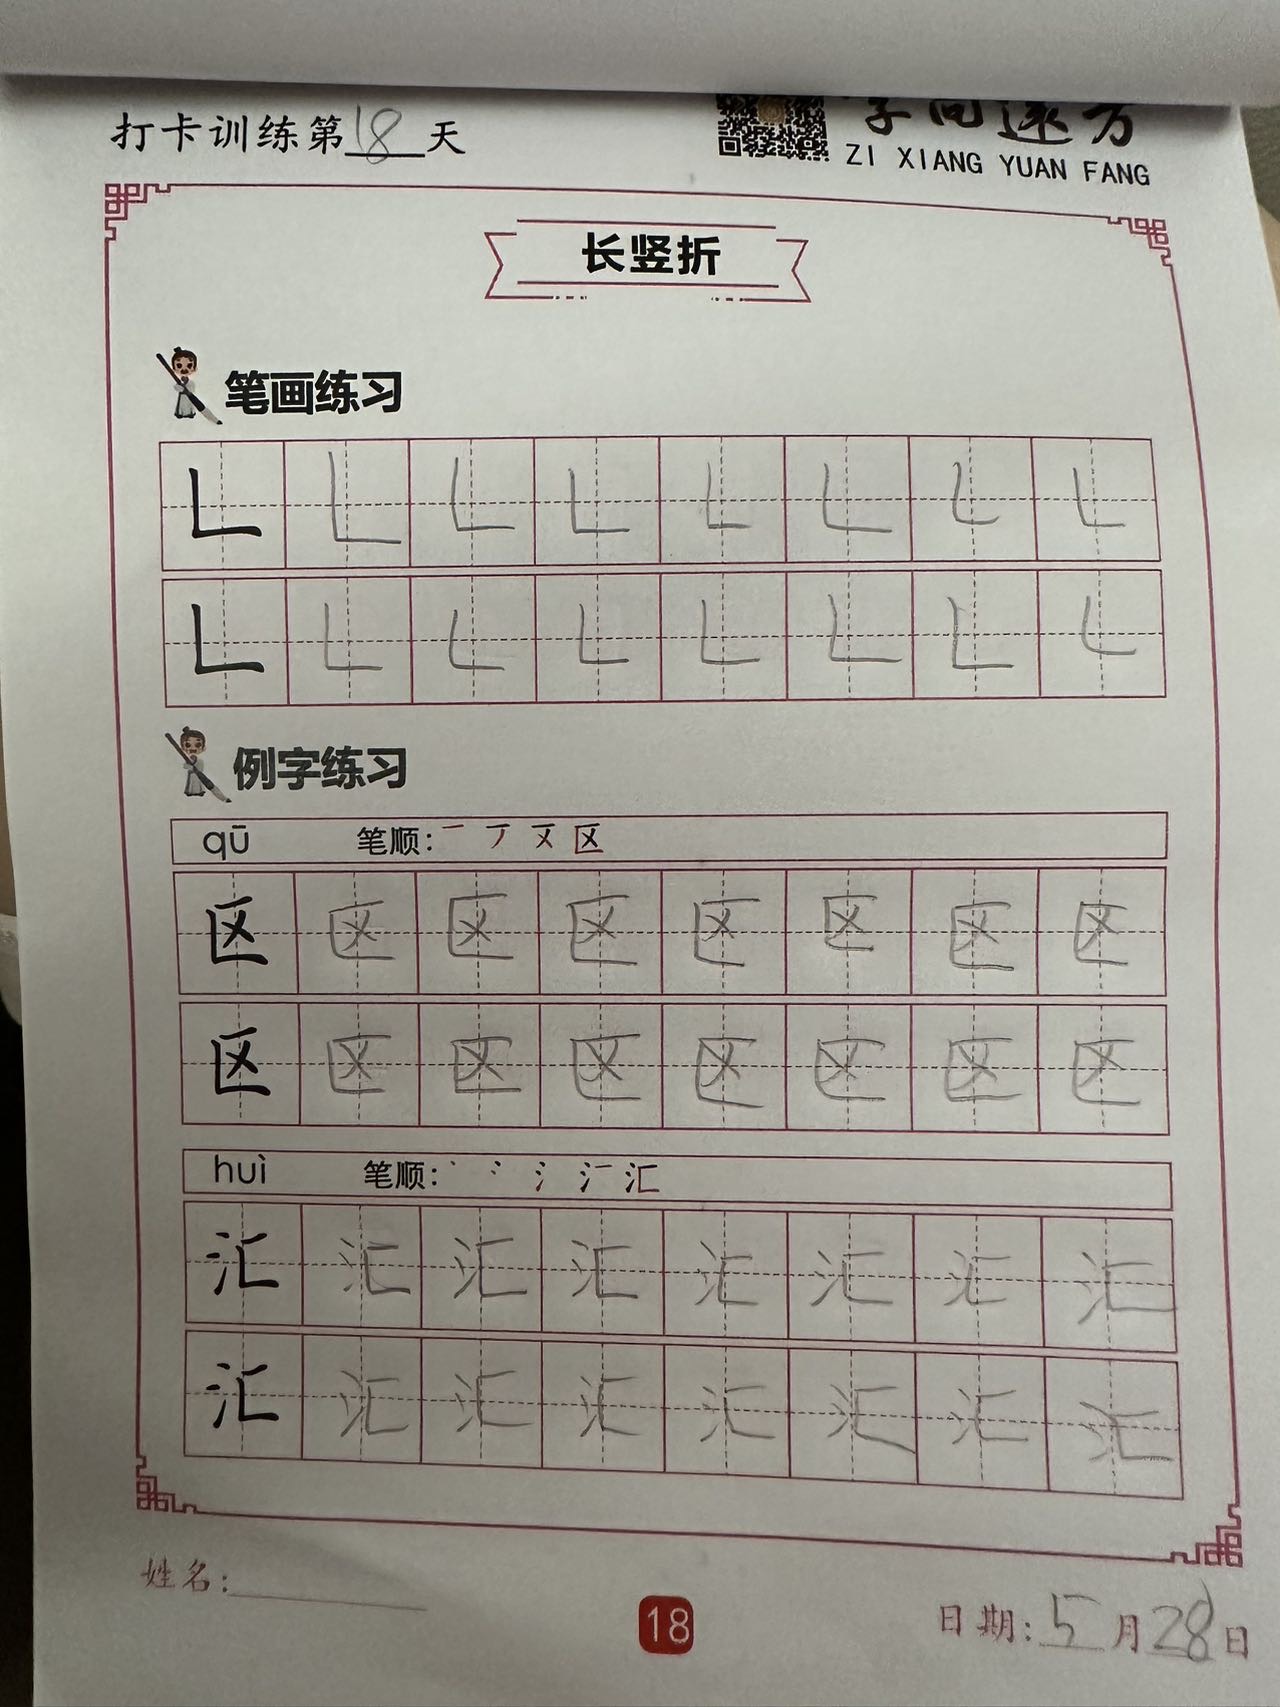 打卡训练第18天
ZI XIANG YUAN FANG
长竖折
笔画练习
例字练习
qū 笔顺: 一 丆 区
区 区 区 区 区 区 区 区
区 区 区 区 区 区 区 区
huì 笔顺: 丶 冫 氵 汇
汇 汇 汇 汇 汇 汇 汇 汇
汇 汇 汇 汇 汇 汇 汇 汇
姓名:
18
日期:5月28日